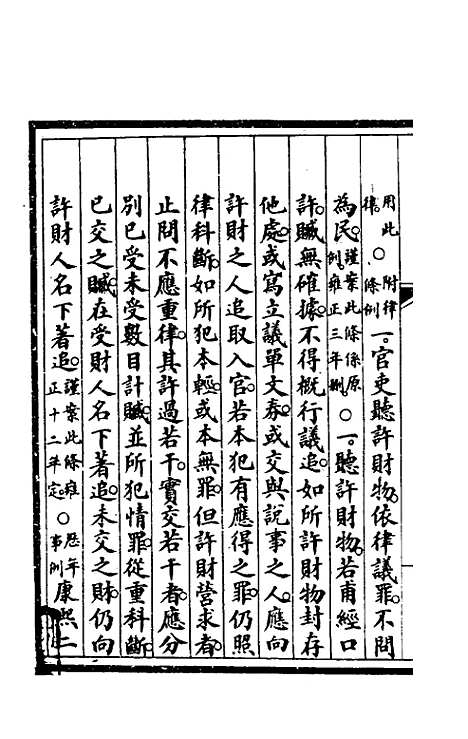 用此律。○附律條例一。官吏聽許財物。依律議罪。不問
為民。謹案此條係原例。雍正三年刪。○一。聽許財物。若甫經口
許。贓無確據。不得概行議追。如所許財物封存
他處。或寫立議單文券。或交與說事之人。應向
許財之人追取入官。若本犯有應得之罪。仍照
律科斷。如所犯本輕。或本無罪。但許財營求者。
止問不應重律。其許過若干。實交若干者。應分
別已受未受數目計贓。並所犯情罪。從重科斷。
已交之贓。在受財人名下著追。未交之財。仍向
許財人名下著追。謹案此條雍正十二年定。○歷年事例康熙二